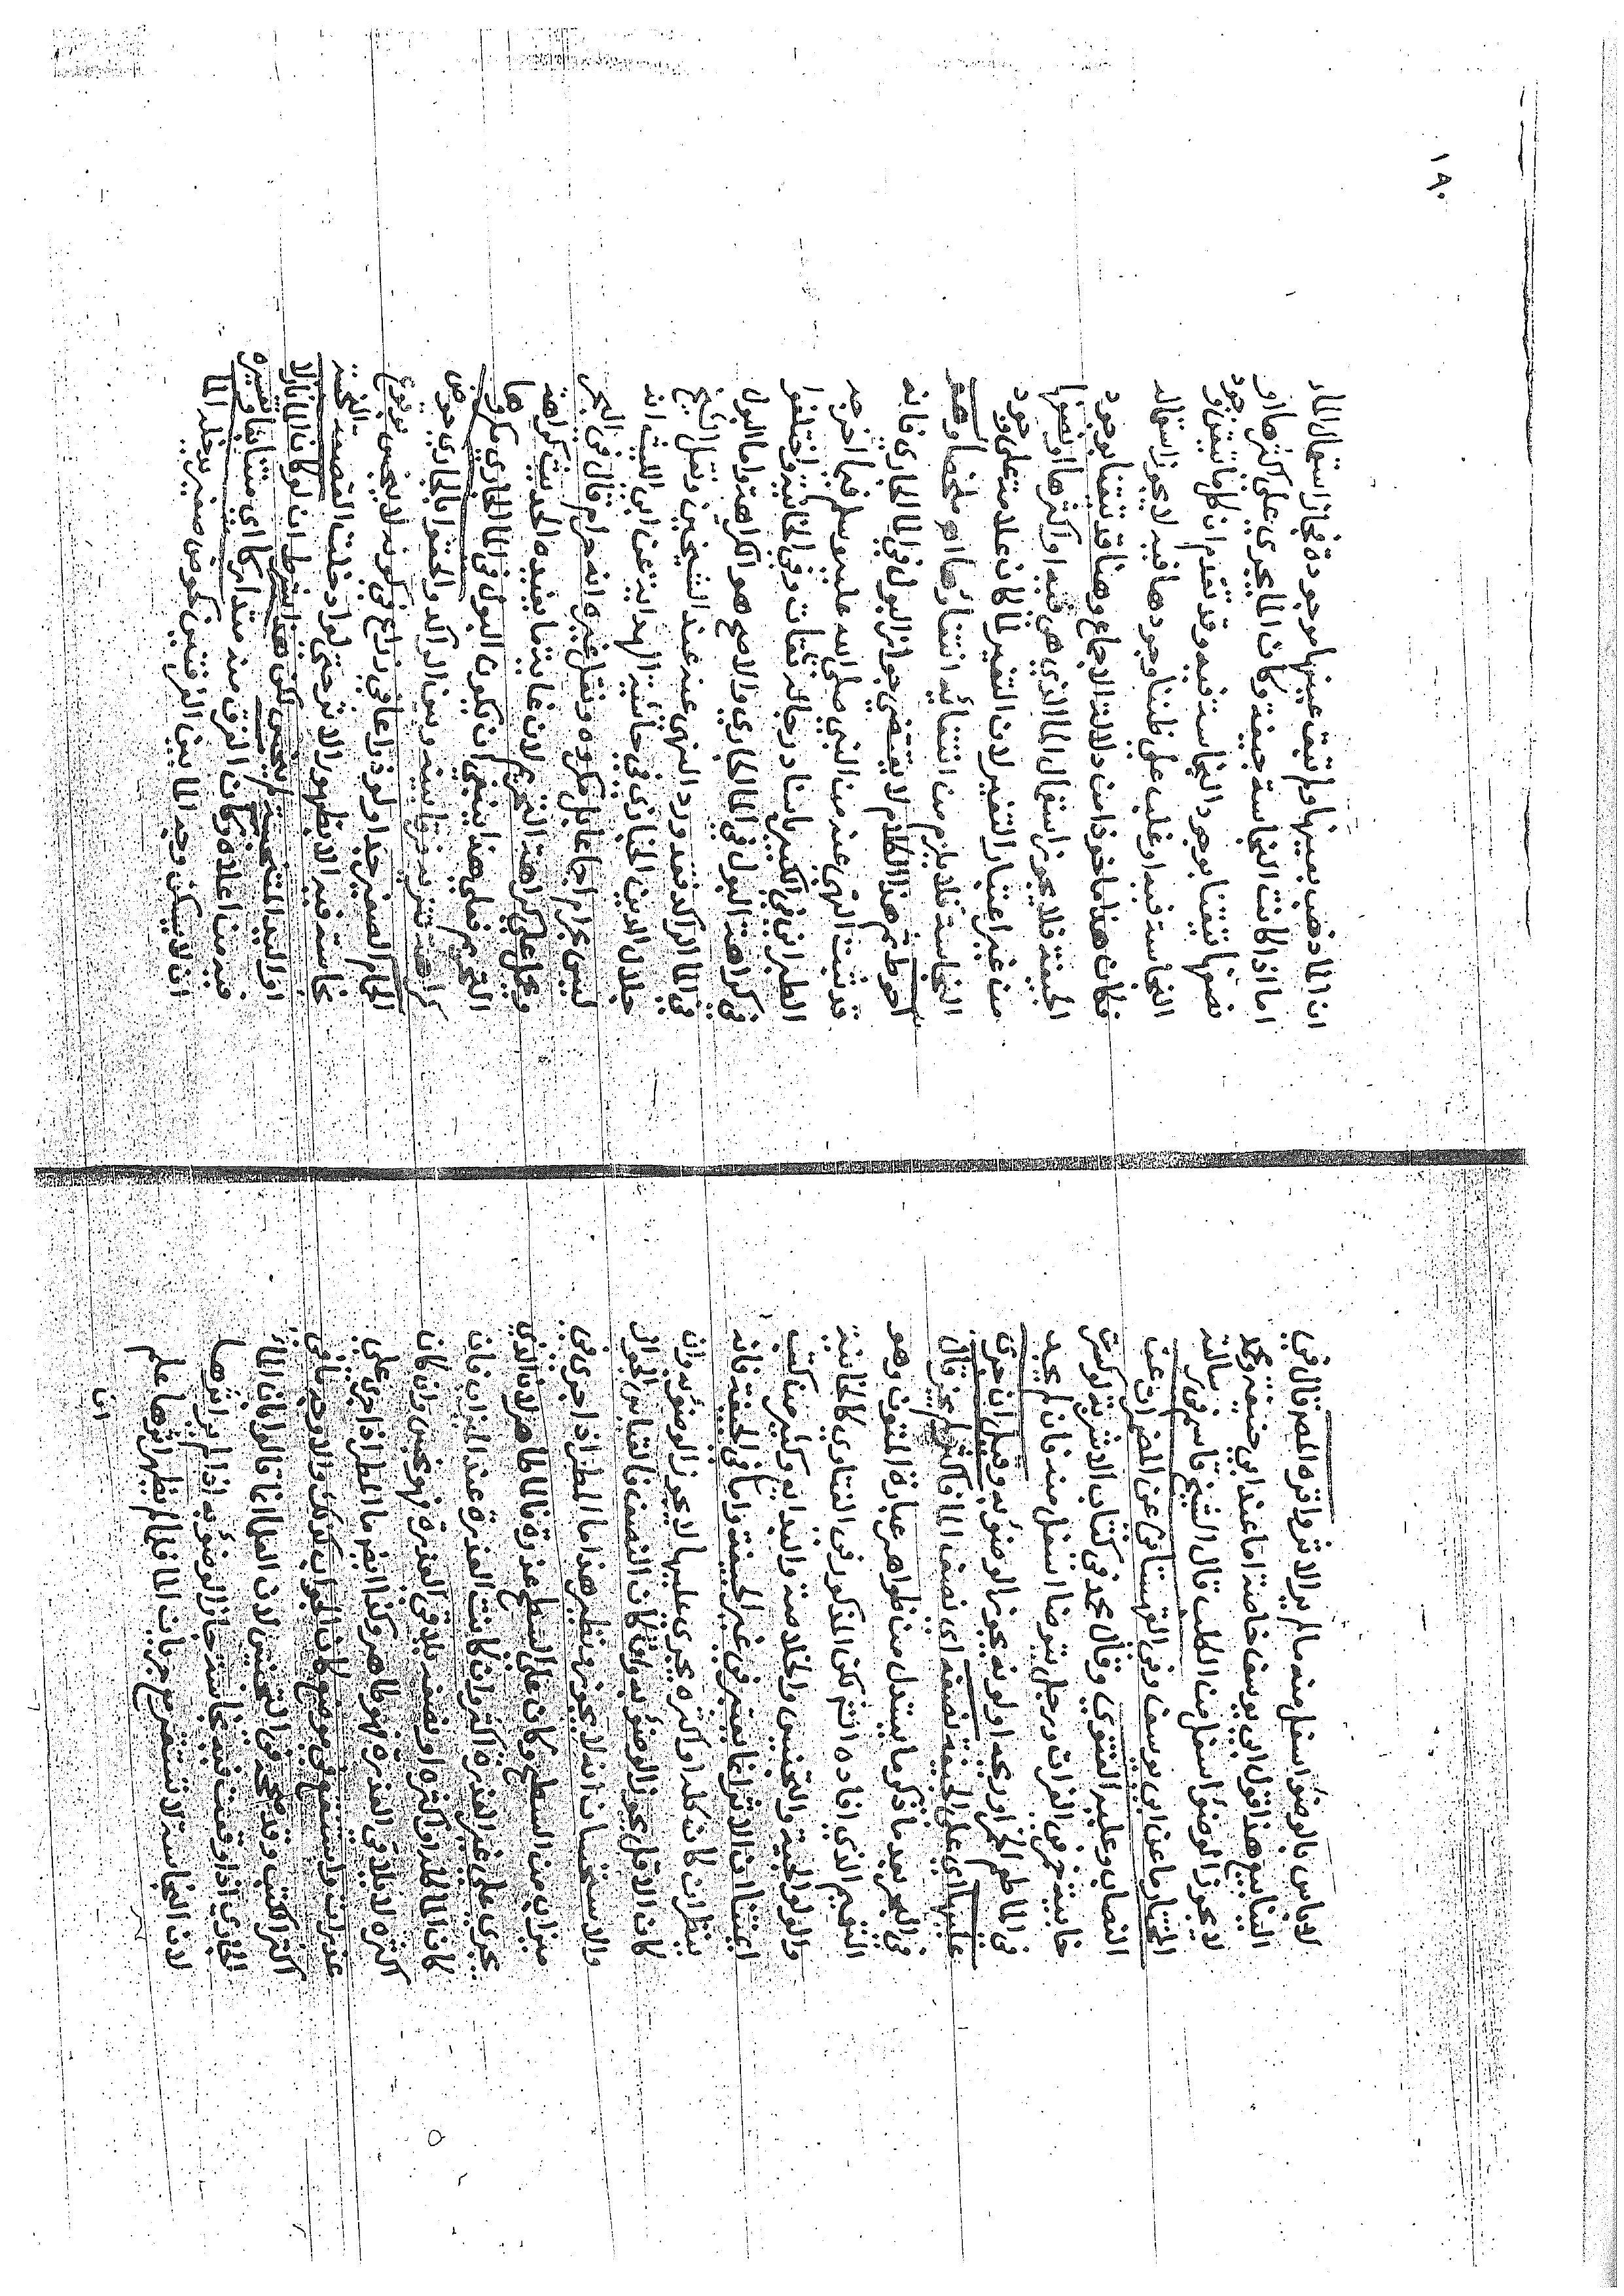 لا باس بالوضوء اسفل منه مالم ير الاثر واقره المصر قال في
الينابيع هذا قول ابي يوسف خاصة اما عند ابي حنيفة ومحمد
لا يجوز الوضوء اسفل من الكلب قال الشيخ قاسم في رسالته
المختار ما عن ابي يوسف وفي القهستاني عن المضمرات عن
النصاب وعليه الفتوى وقال محمد في كتاب الاشربة لو كسرت
خابية خمر في الفرات ورجل يتوضا اسفل منه فان لم يجد
في الماء طعم الخمر او ريحه او لونه يجوز الوضوء به وقيل ان جرى
عليها اي على الجيفة نصفه اى نصف الماء فاكثر لم يجز قال
في البحر بعد ما ذكر ما يستدل من ظواهر عبارة المتون وهو
التعميم الذي افاده انتم لكن المذكور في الفتاوى كالخانية
والولوالجية والتجنيس والخلاصة والبدايع وكثير من كتب
ايمتنا ان الاثر انما يعتبر في غير الجيفة واما في الجيفة فانه
ينظر ان كان كله او اكثره يجري عليها لا يجوز الوضوء به وان
كان الاقل يجوز الوضوء به وان كان النصف فالقياس الجواز
والاستحسان انه لا يجوز ونظير هذا ماء المطر اذا جرى في
ميزاب من السطح وكان على السطح عذرة فالماء طاهر لان الذي
يجري على غير العذرة اكثر وان كانت العذرة عند الميزاب فان
كان الماء كله او اكثره او نصفه يلاقي العذرة فهو نجس وان كان
اكثره لا يلاقي العذرة فهو طاهر وكذا ايضا ماء المطر اذا جرى على
عذرات واستنقع في موضع كان الجواب كذلك والاوجه ما في
اكثر الكتب وقد صححه في التجنيس لان العلماء انما قالوا بان الماء
الجاري اذا وقعت فيه نجاسة جاز الوضوء به اذا لم ير اثرها
لان النجاسة لا تستقر مع جريان الماء فلما لم يظهر اثرها علم
ان
١٩٠
ان الماء ذهب بعينها ولم تبق عينها موجودة فجاز استعمال الماء
اما اذا كانت النجاسة جيفة وكان الماء يجري على اكثرها او
نصفها تيقنا بوجود النجاسة فيه وقد تقدم ان كل ما تيقن وجود
النجاسة فيه او غلب على ظننا وجودها فيه لا يجوز استعماله
فكان هذا ماخوذا من دلالة الاجماع وهنا قد تيقنا بوجود
الجيفة فلا يجوز استعمال الماء الذي هي فيه او اكثرها او نصفها
من غير اعتبار التغير لان التغير لما كان علامة على وجود
النجاسة فلا يلزم من انتفائه انتفاؤها اه ملخصا وهو
احوط ثم هذا الكلام لا يقتضي جواز البول في الماء الجاري فانه
قد ثبت النهي عنه من النبي صلى الله عليه وسلم فيما اخرجه
الطبراني في الكبير باسناد رجاله ثقات وفي الخانية واختلفوا
في كراهة البول في الماء الجاري والاصح هو الكراهة واما البول
في الماء الراكد فقد ورد النهي عنه عند الشيخين ونقل الشيخ
جلال الدين الخبازي في حاشية الهداية عن ابي الليث انه
ليس بحرام اجماعا بل مكروه ونقل غيره انه حرام قال في البحر
ويحمل على كراهة التحريم لان غاية ما يفيده الحديث كراهة
التحريم فعلى هذا ينبغي ان يكون البول في الماء الجاري مكروها
كراهة تنزيه فرقا بينه وبين الراكد والحقوا بالجاري حوض
الحمام الصغير جدا ولو ذراعا في ذراع في كونه لا ينجس بوقوع
نجاسة فيه الا بظهور الاثر حتى لو ادخلت القصعة النجسة
او اليد المتنجسة لم ينجس لكن هذا بشرط ان لو كان الماء نازلا
فيه من اعلاه وكان الغرف منه متداركا اي متتابعا وفسره
ان لا يسكن وجه الماء بين الغرفتين كحوض صغير يدخله الماء